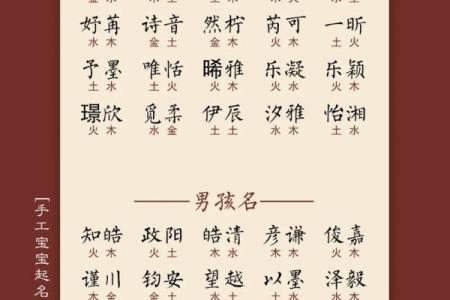 妤苒 诗音 然柠 芮可 一昕
水木 金土 金木 木木 土火
予墨 唯恬 晞雅 乐凝 乐颖
土水 土火 火木 火水 火木
璟欣 觅柔 伊辰 汐雅 怡湘
火木 水金 土土 水木 土水
男孩名
知皓 政阳 皓清 彦谦 俊嘉
火木 火土 木水 木木 火木
谨川 钧安 望越 以墨 泽毅
木金 金土 水土 土水 水木
[手工宝宝起名